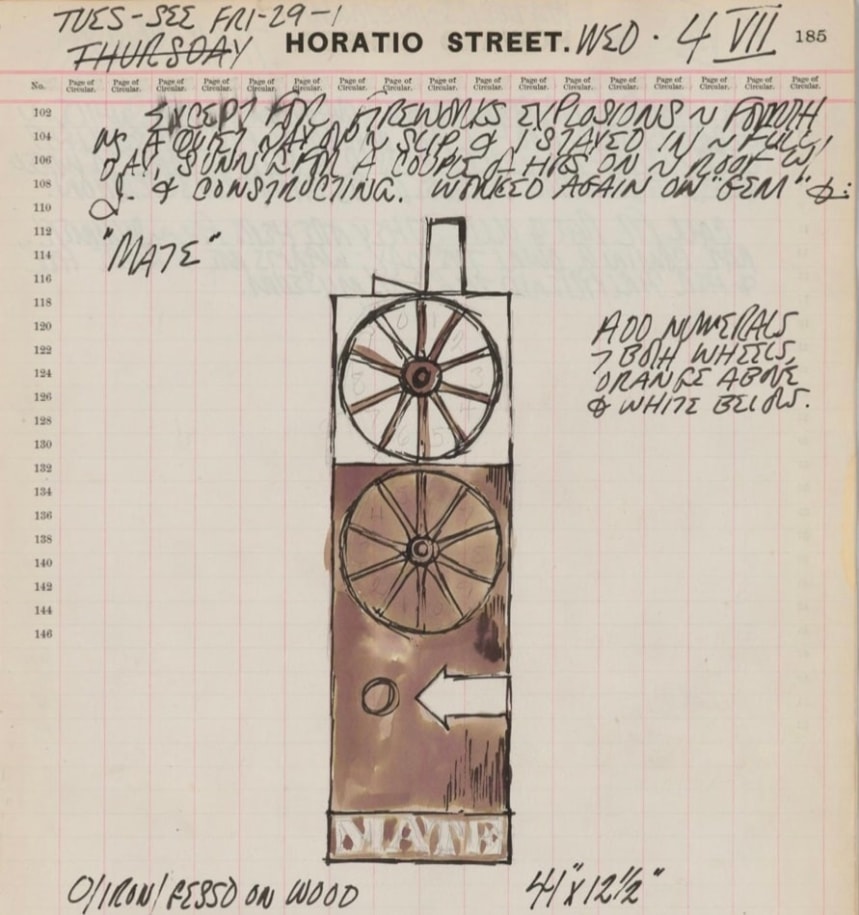 TUES-SEE FRI-29-1
THURSDAY HORATIO STREET. WED. 4 VII 185
No. Page of Circular. Page of Circular. Page of Circular. Page of Circular. Page of Circular. Page of Circular. Page of Circular. Page of Circular. Page of Circular. Page of Circular. Page of Circular. Page of Circular. Page of Circular. Page of Circular. Page of Circular. Page of Circular. Page of Circular.
102 EXCEPT FOR FIREWORKS EXPLOSIONS ~ FOURTH
104 WAS A QUIET DAY ON ~ SLIP, & I STAYED IN ~ FULL
106 DAY, SUNN'G FOR A COUPLE OF HRS ON ~ ROOF W/
108 & CONSTRUCTING. WORKED AGAIN ON "GEM" &:
110
112 "MATE"
114
116
118
120 ADD NUMERALS
122 BOTH WHEELS,
124 ORANGE ABOVE
126 & WHITE BELOW.
128
130
132
134
136
138
140
142
144
146
MATE
O/IRON/GESSO ON WOOD 41" X 12½"